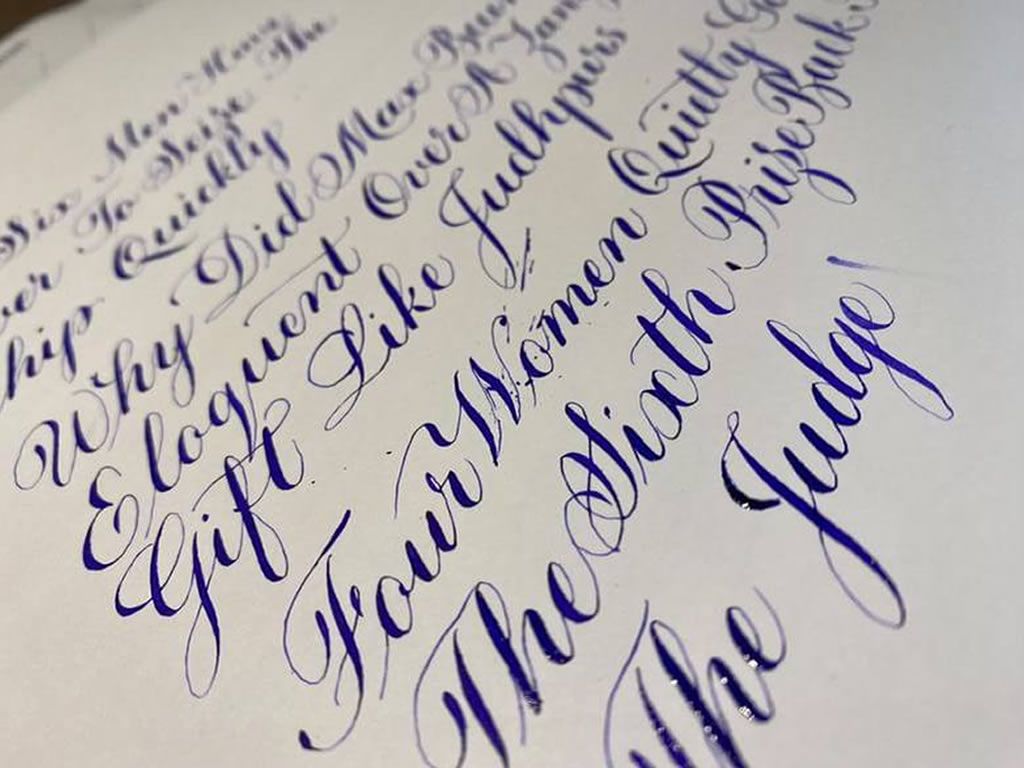 Six Men Have
To Seize The
Quickly
Why Did Max
Eloquent Over A
Gift Like Judhpurs
Four Women
The Sixth Prize Back
The Judge